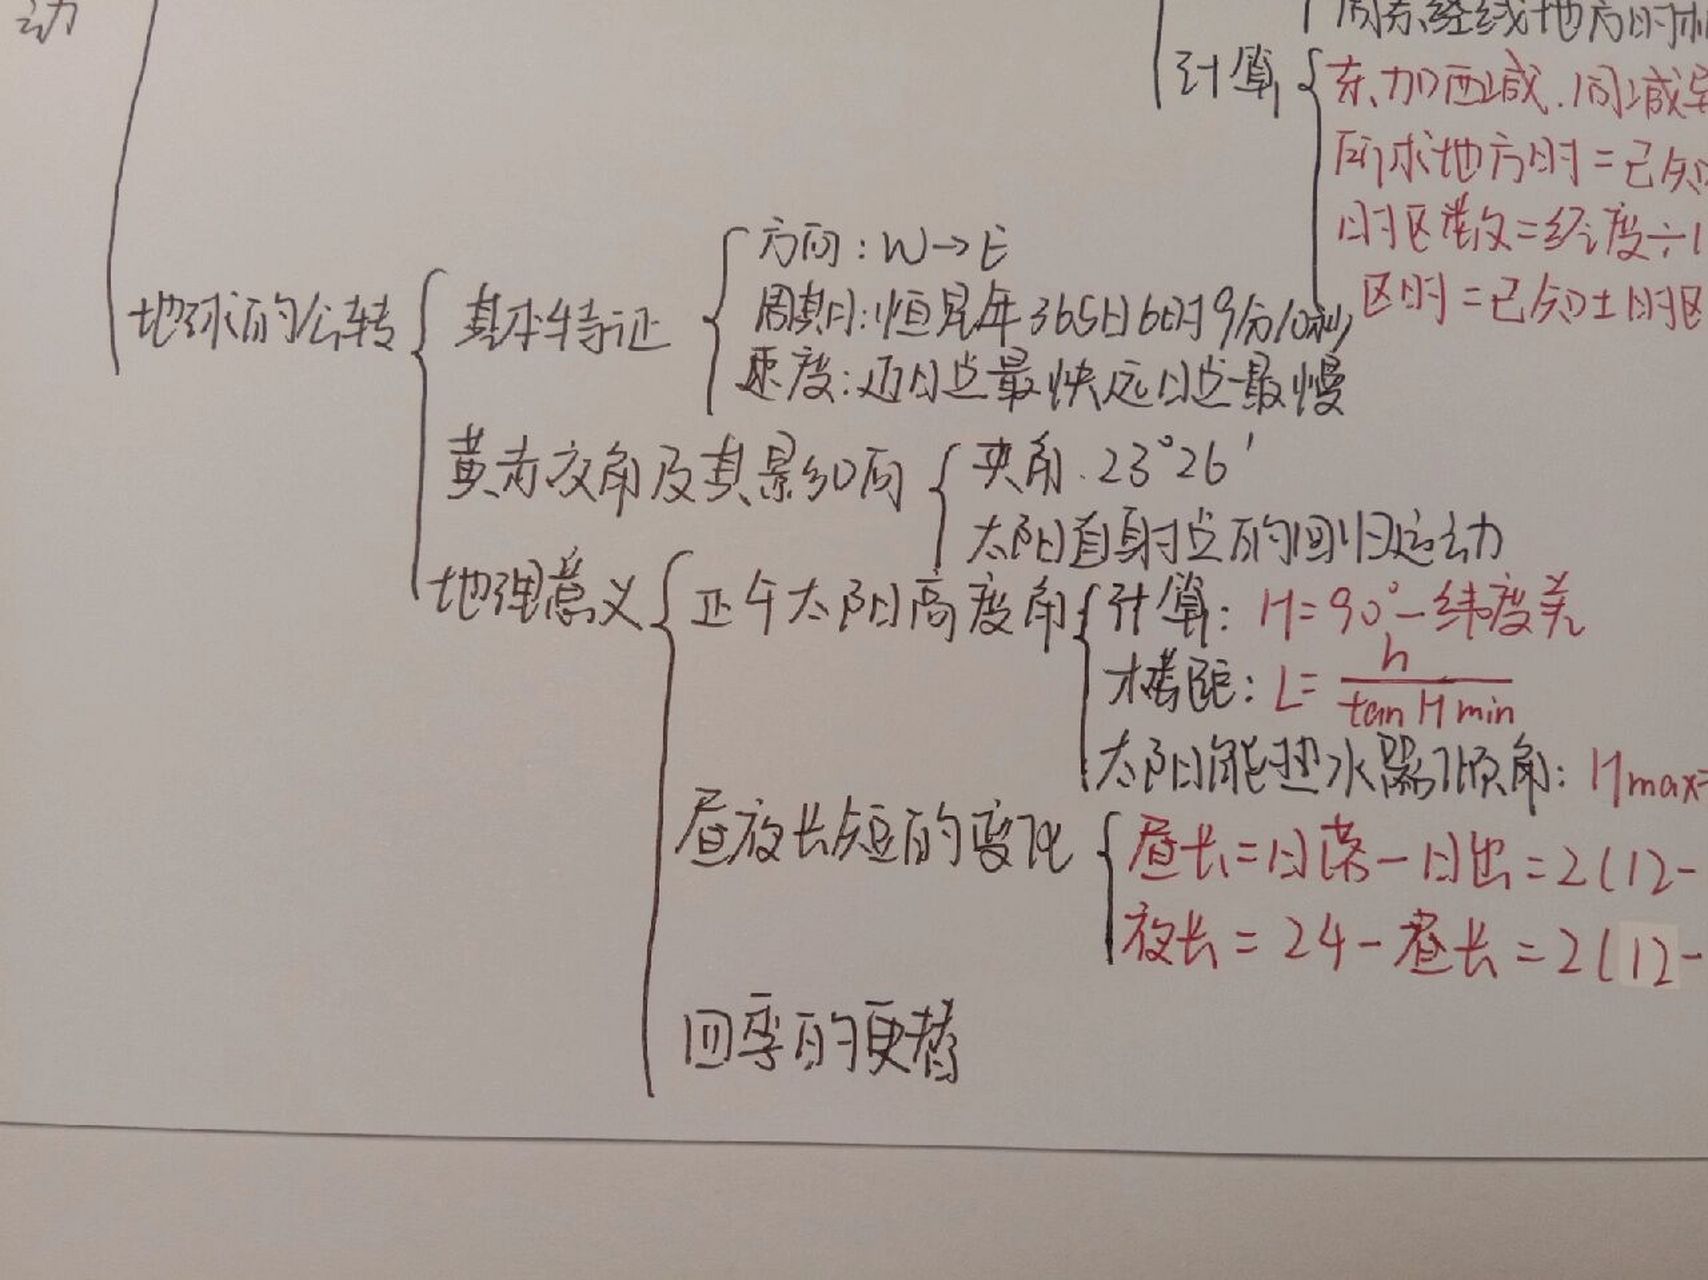 动
同东经线地方时
计算
东加西减.同减异
所求地方时=已知
时区数=经度÷1
区时=已知±时区
地球的公转
基本特证
方向:W→E
周期:恒星年365日6时9分10秒
速度:近日点最快远日点最慢
黄赤交角及其影响
夹角.23°26′
太阳直射点的回归运动
地理意义
正午太阳高度角
计算:H=90°-纬度差
楼距:L=h/tan H min
太阳能热水器倾角:Hmax=
昼夜长短的变化
昼长=日落-日出=2(12-
夜长=24-昼长=2(12-
四季的更替